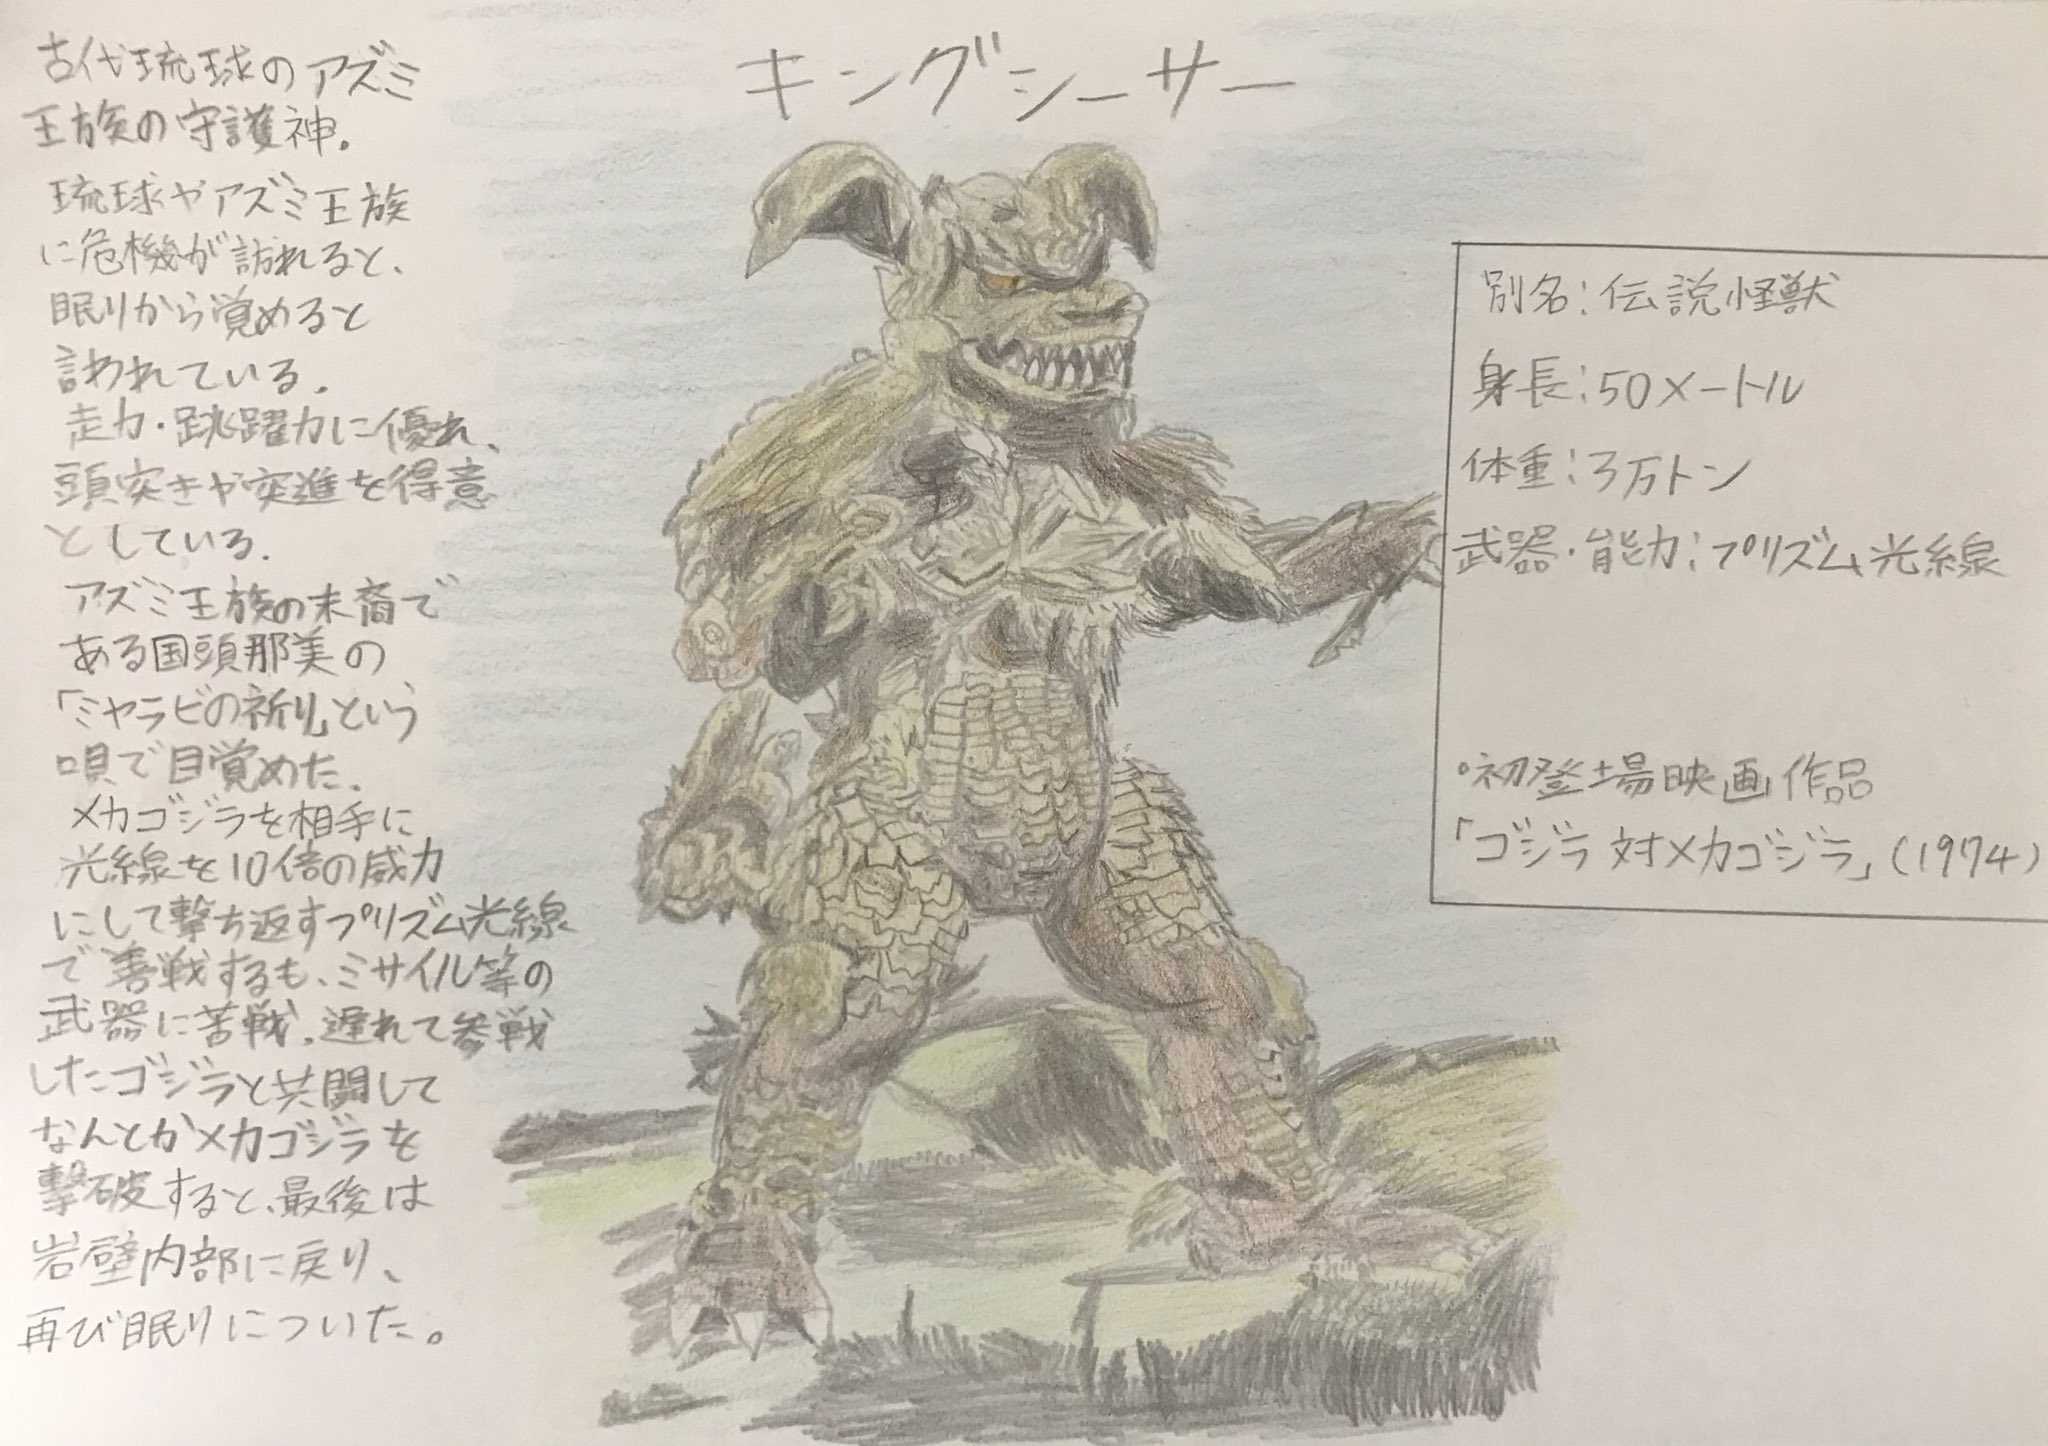 キングシーサー
古代琉球のアズミ
王族の守護神。
琉球やアズミ王族
に危機が訪れると、
眠りから覚めると
言われている。
走力・跳躍力に優れ、
頭突きや突進を得意
としている。
アズミ王族の末裔で
ある国頭那美の
「ミヤラビの祈り」という
唄で目覚めた。
メカゴジラを相手に
光線を10倍の威力
にして撃ち返すプリズム光線
で善戦するも、ミサイル等の
武器に苦戦。遅れて参戦
したゴジラと共闘して
なんとかメカゴジラを
撃破すると、最後は
岩壁内部に戻り、
再び眠りについた。
別名:伝説怪獣
身長:50メートル
体重:3万トン
武器・能力:プリズム光線
・初登場映画作品
「ゴジラ対メカゴジラ」(1974)